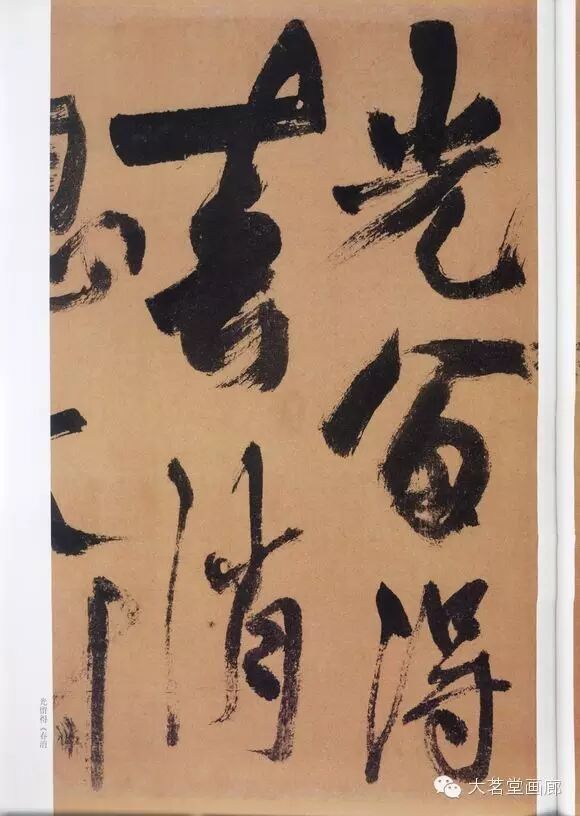 光留得
春消
光留得《春消
大茗堂画廊